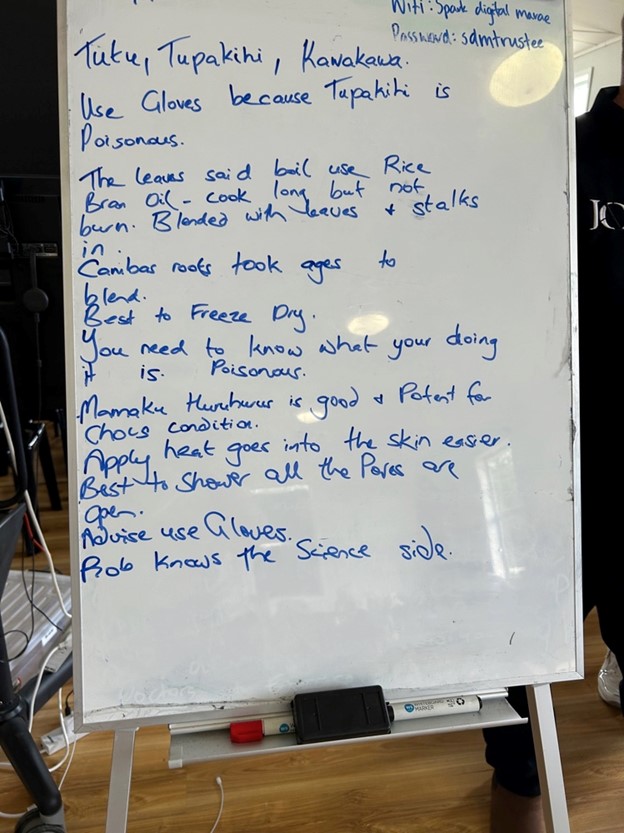 Wifi: Spark digital marae
Password: sdmtrustee
Tutu, Tupakihi, Kawakawa.
Use Gloves because Tupakihi is
Poisonous.
The leaves said boil use Rice
Bran Oil - cook long but not
burn. Blended with leaves + stalks
in.
Canibas roots took ages to
blend.
Best to Freeze Dry.
You need to know what your doing
it is. Poisonous.
Mamaku Huruhuru is good + Potent for
condition.
Apply heat goes into the skin easier.
Best to Shower all the Pores are
open.
Advise use Gloves.
Rob knows the Science side.